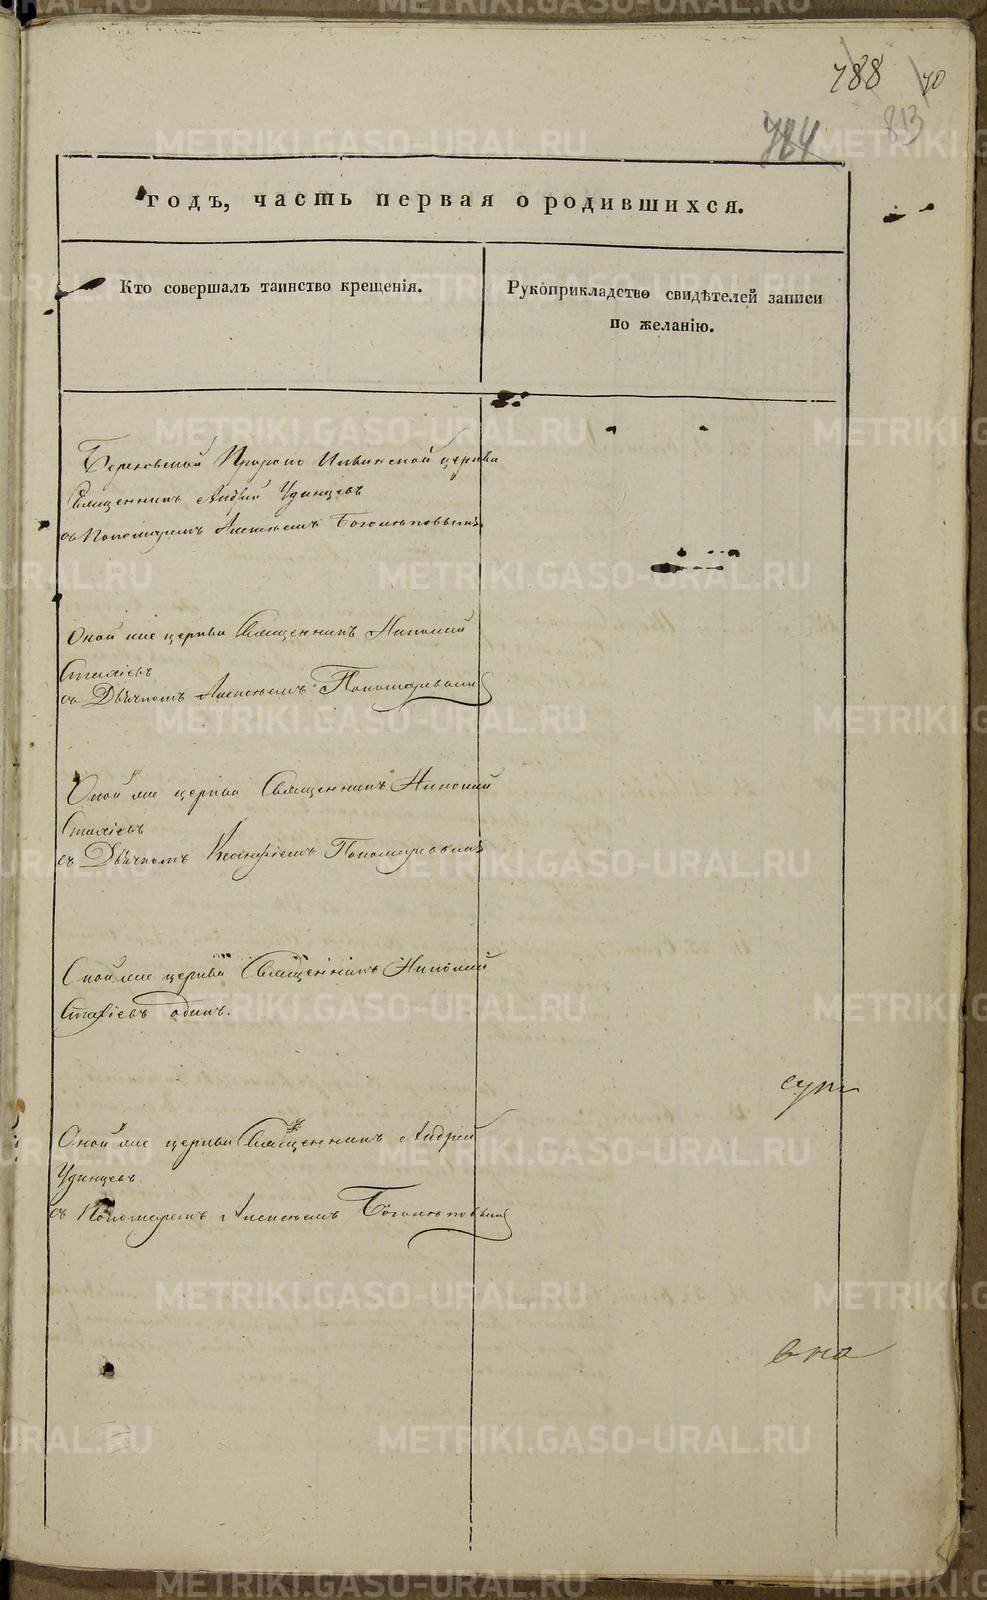 788 70
784 813
годъ, часть первая о родившихся.
Кто совершалъ таинство крещенія.
Рукоприкладство свидѣтелей записи
по желанію.
Церковной Пророко Ильинской церкви
Священникъ Андрей Удинцевъ
съ Пономаремъ Алексѣемъ Боголюбовымъ
Оной же церкви Священникъ Николай
Стахіевъ
съ Дьячкомъ Алексѣемъ Пономаревымъ
Оной же церкви Священникъ Николай
Стахіевъ
съ Дьячкомъ Пономаревымъ
Оной же церкви Священникъ Николай
Стахіевъ одинъ.
Оной же церкви Священникъ Андрей
Удинцевъ
съ Пономаремъ Алексѣемъ Боголюбовымъ
METRIKI.GASO-URAL.RU